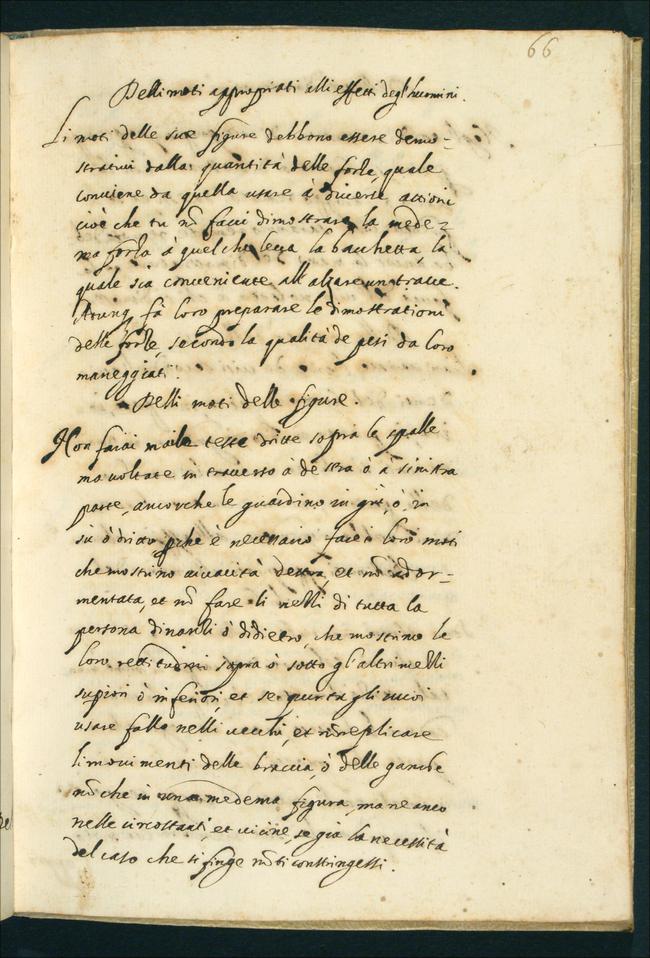 66
Delli moti appropriati alli effetti degl'huomini.
Li moti delle sue figure debbono essere demo-
strativi dalla quantità delle forze, quale
conviene da quella usare à diverse attioni
cioè che tu nõ facci dimostrare la mede-
ma forza à quel che leva la bacchetta, la
quale sia conveniente all'alzare un trave.
Adunq fà loro preparare le dimostrationi
delle forze, secondo la qualità de pesi da loro
maneggiati.
Delli moti delle figure.
Non farai mai le teste dritte sopra le spalle
ma voltate in traverso à destra ò à sinistra
parte, ancorche le guardino in giù, ò in
sù ò dritto pche è necessario fare i loro moti
che mostrino vivacità desta, et nõ ador-
mentata, et nõ fare li mezzi di tutta la
persona dinanzi ò didietro, che mostrino le
loro rettitudini sopra ò sotto gl'altri mezzi
supiori ò inferiori, et se questa gli vuoi
usare fallo nelli vecchi, et nõ replicare
li movimenti delle braccia, ò delle gambe
nõ che in una medema figura, ma ne anco
nelle circostanti, et vicine, se già la necessità
del caso che si finge nõ ti constringessi.